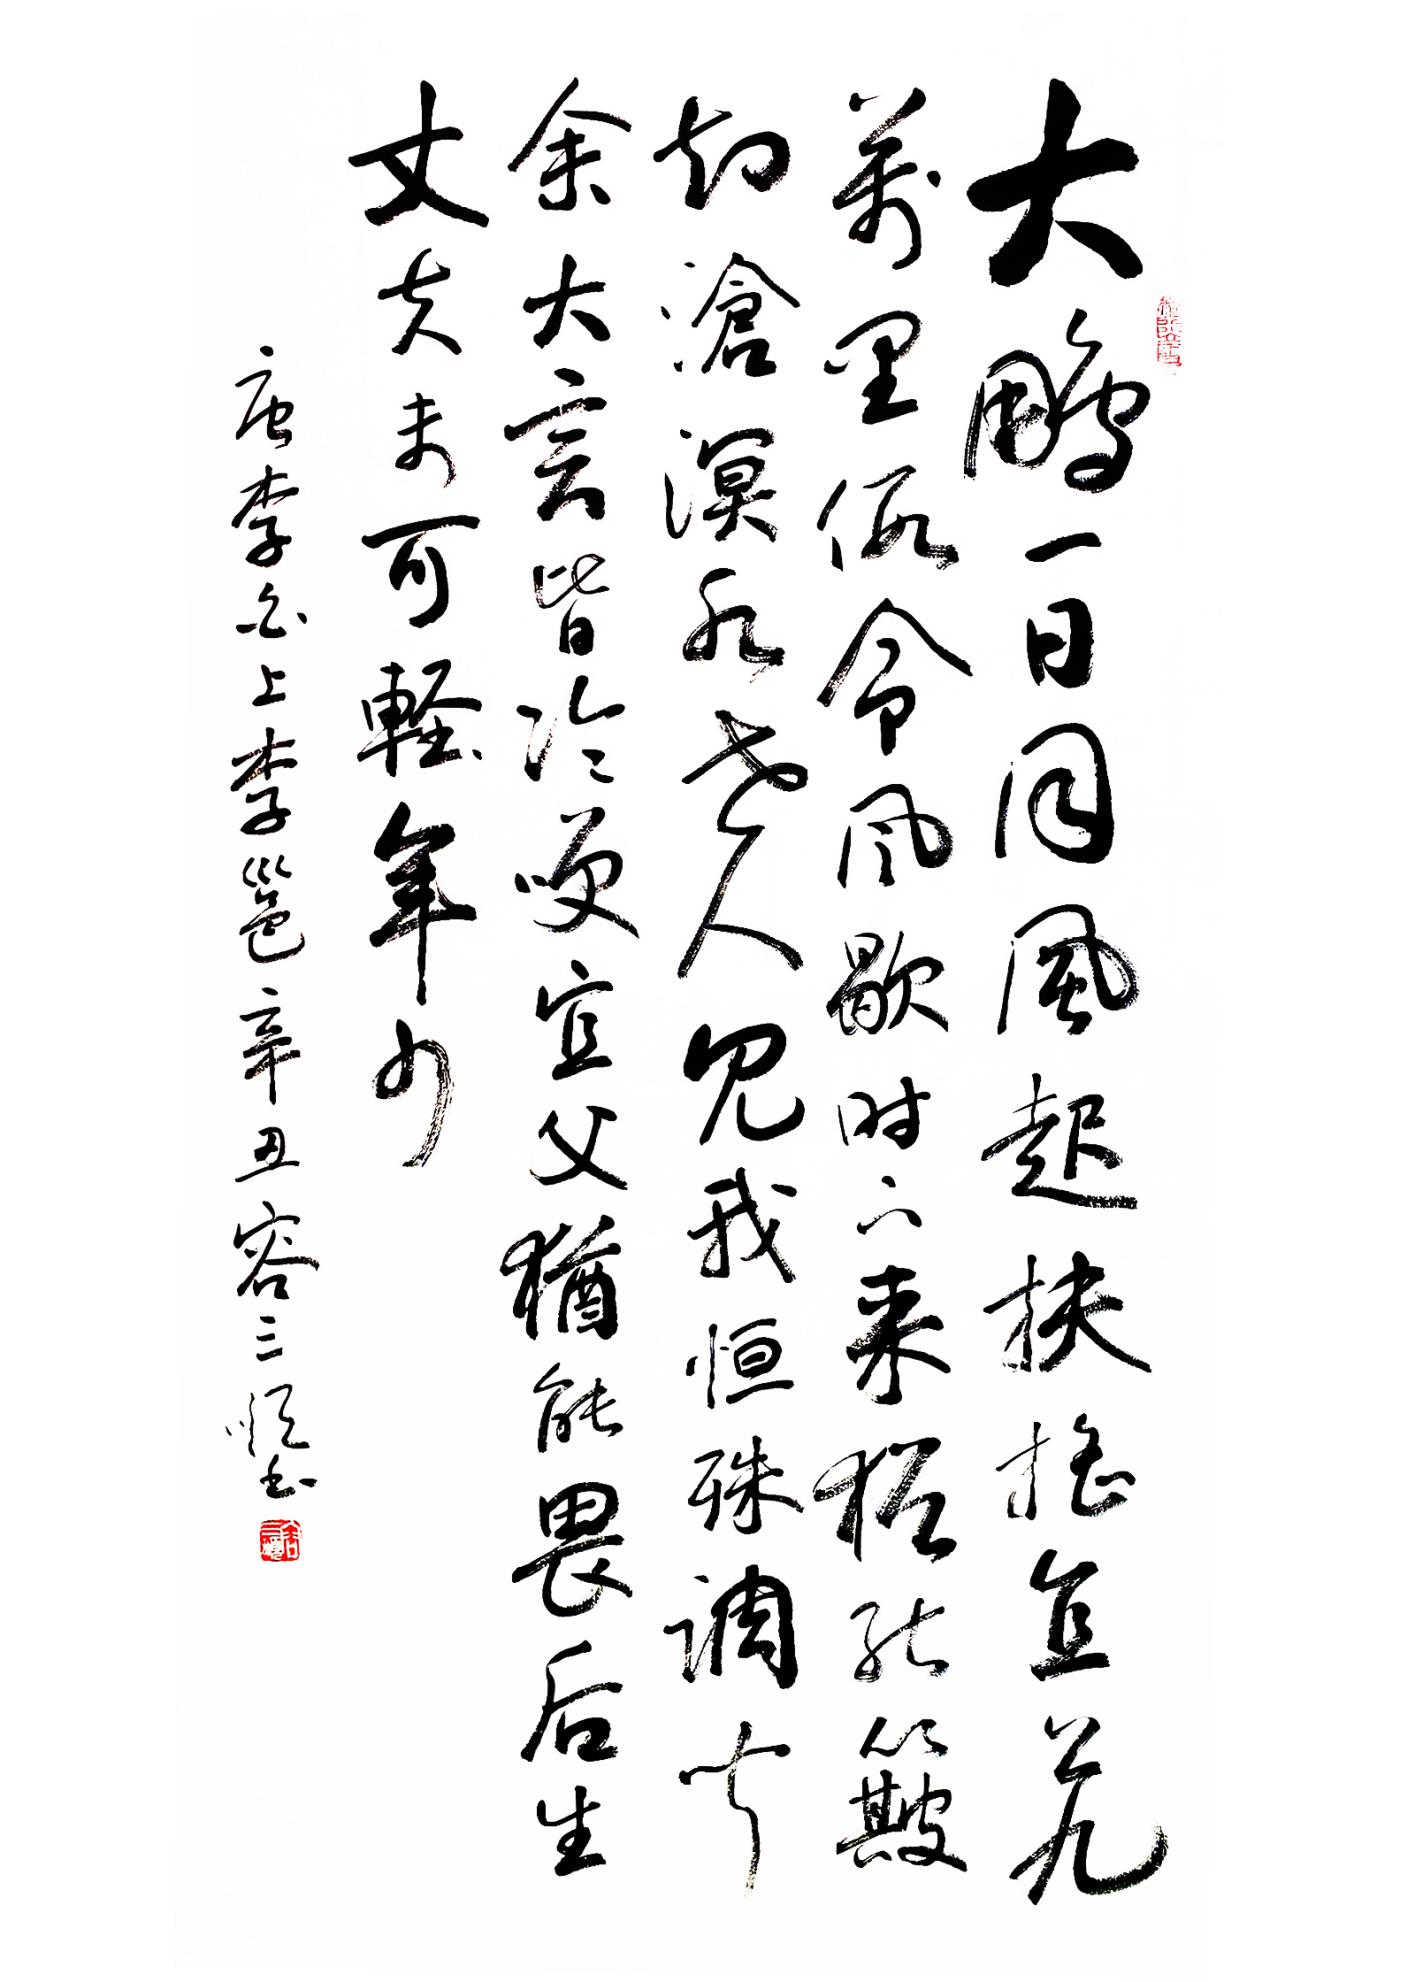 大鵬一日同風起扶搖直上九
萬里假令風歇时下来猶能簸
却滄溟水世人見我恒殊調聞
余大言皆冷咲宣父猶能畏后生
丈夫未可軽年少
唐李白上李邕辛丑容三順书